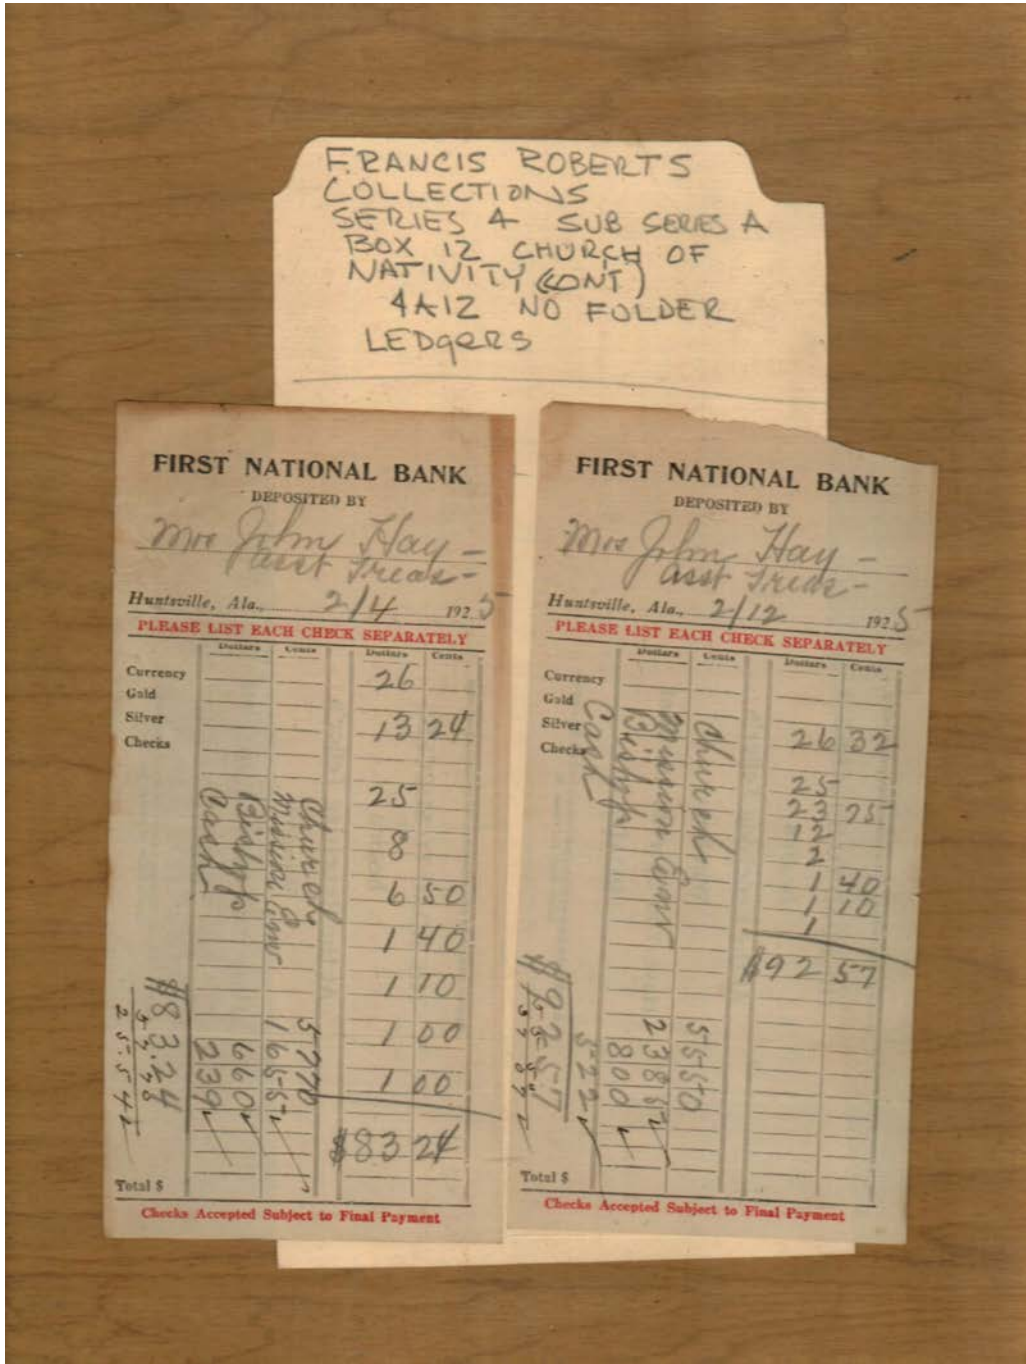 FRANCIS ROBERTS
COLLECTIONS
SERIES 4 SUB SERIES A
BOX 12 CHURCH OF
NATIVITY (CONT)
4A12 NO FOLDER
LEDgERS
FIRST NATIONAL BANK
DEPOSITED BY
Mrs John Hay -
Asst Treas -
Huntsville, Ala., 2/4 1925
PLEASE LIST EACH CHECK SEPARATELY
Dollars Cents Dollars Cents
Currency 26
Gold
Silver 13 24
Checks
25
8
6 50
1 40
1 10
1 00
1 00
$83 24
Church 5770
Mission 1655
Bishop 660
Cash 239
$83.24
57 70
25.54
Total $
Checks Accepted Subject to Final Payment
FIRST NATIONAL BANK
DEPOSITED BY
Mrs John Hay -
Asst Treas -
Huntsville, Ala., 2/12 1925
PLEASE LIST EACH CHECK SEPARATELY
Dollars Cents Dollars Cents
Currency
Gold
Silver 26 32
Checks
25
23 75
12
2
1 40
1 10
1
$92 57
Church 5550
Mission 2385
Bishop 800
Cash 522
$92.57
Total $
Checks Accepted Subject to Final Payment